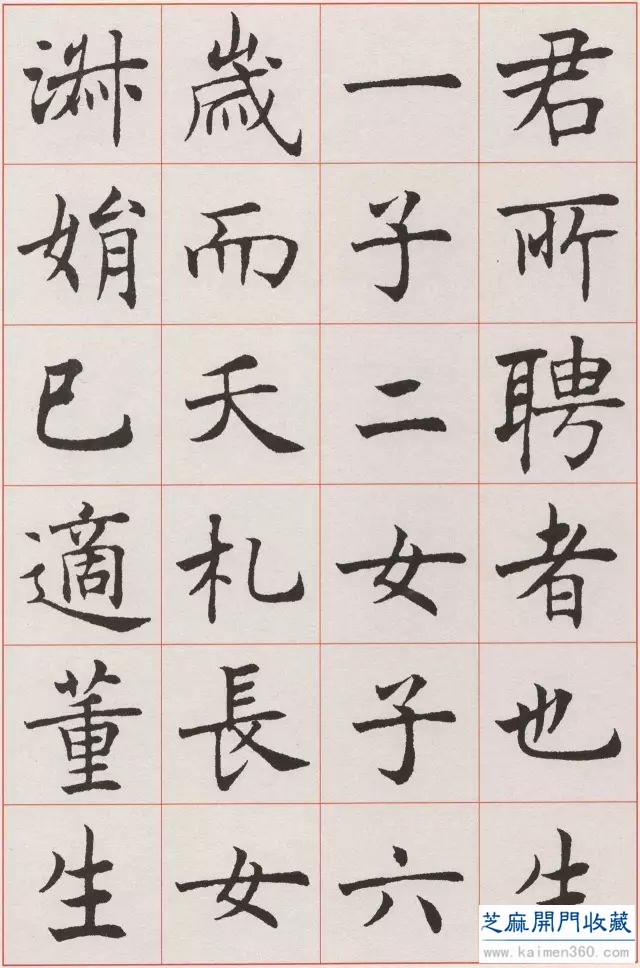 君所聘者也生
一子二女子六
歲而夭札長女
淑娟已適董生
芝麻開門收藏
www.kaimen360.com